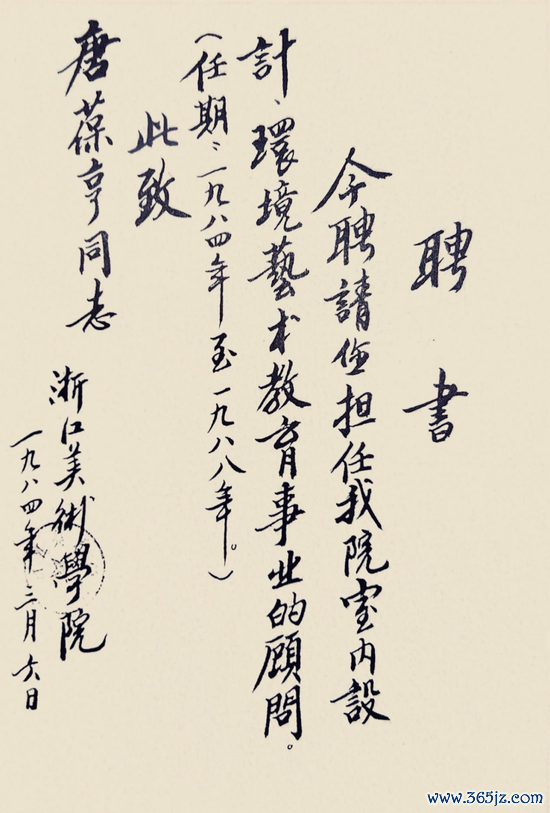 聘書
今聘請你担任我院室内設
計、環境藝术教育事业的顾問。
（任期：一九八四年至一九八八年。）
此致
唐葆亨同志
浙江美術學院
一九八四年三月六日
www.365jz.com